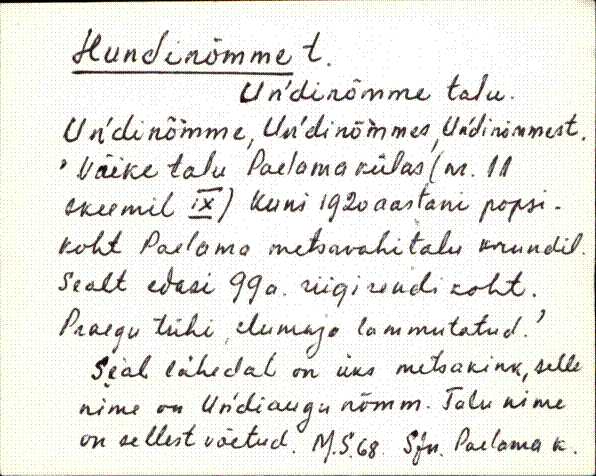 Hundinõmme t.
Un'dinõmme talu.
Un'dinõmme, Un'dinõmmes, Un'dinõmmest.
'Väike talu Paelama külas (nr. 11
skeemil IX) Kuni 1920 aastani popsi-
koht Paelama metsavahitalu krundil.
Sealt edasi 99 a. riigirendi koht.
Praegu tühi, elumaja lammutatud.'
Seal lähedal on üks metsakink, selle
nime on Un'diaugu nõmm. Talu nime
on sellest võetud. M.S.68. Sjn. Paelama k.